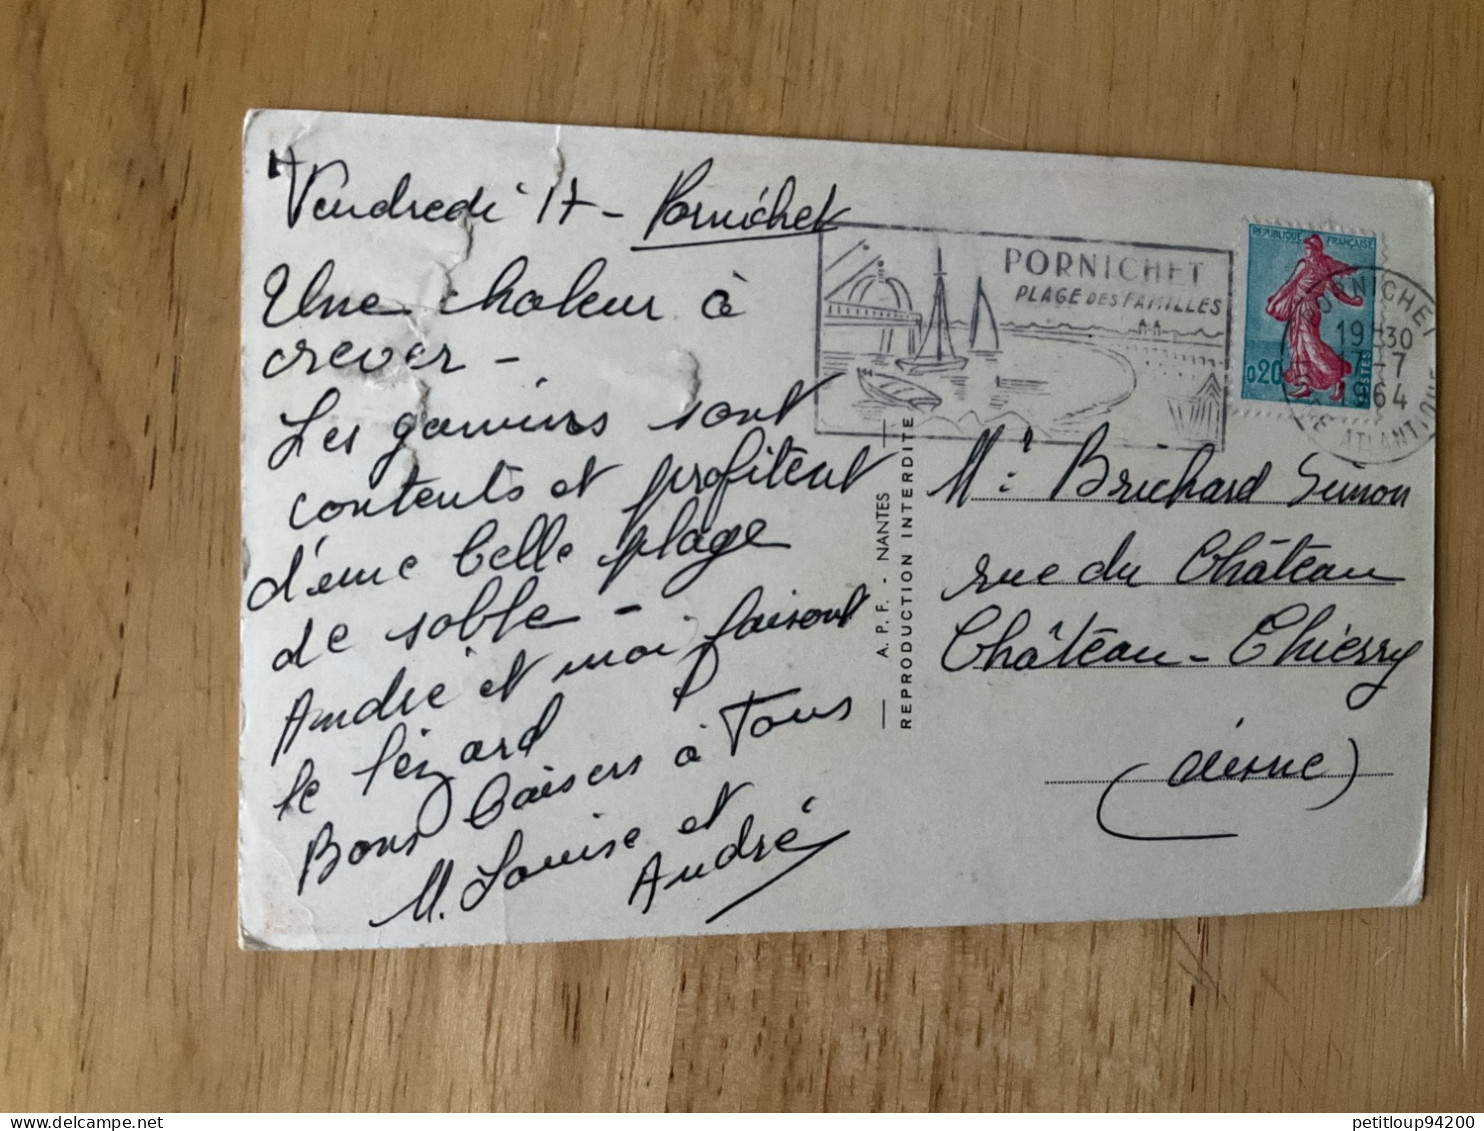 Vendredi 17 - Pornichet
Une chaleur à
crever -
Les gamins sont
contents et profitent
d'une belle plage
de sable -
André et moi faisons
le lézard
Bons baisers à Tous
M. Louise et
André
PORNICHET
PLAGE DES FAMILLES
REPUBLIQUE FRANÇAISE
0,20
POSTES
PORNICHET
19H30
17-7
1964
ATLANTIQUE
A. P. F. - NANTES
REPRODUCTION INTERDITE
Mr: Brichard Simon
rue du Château
Château-Thierry
(Aisne)
petitloup94200